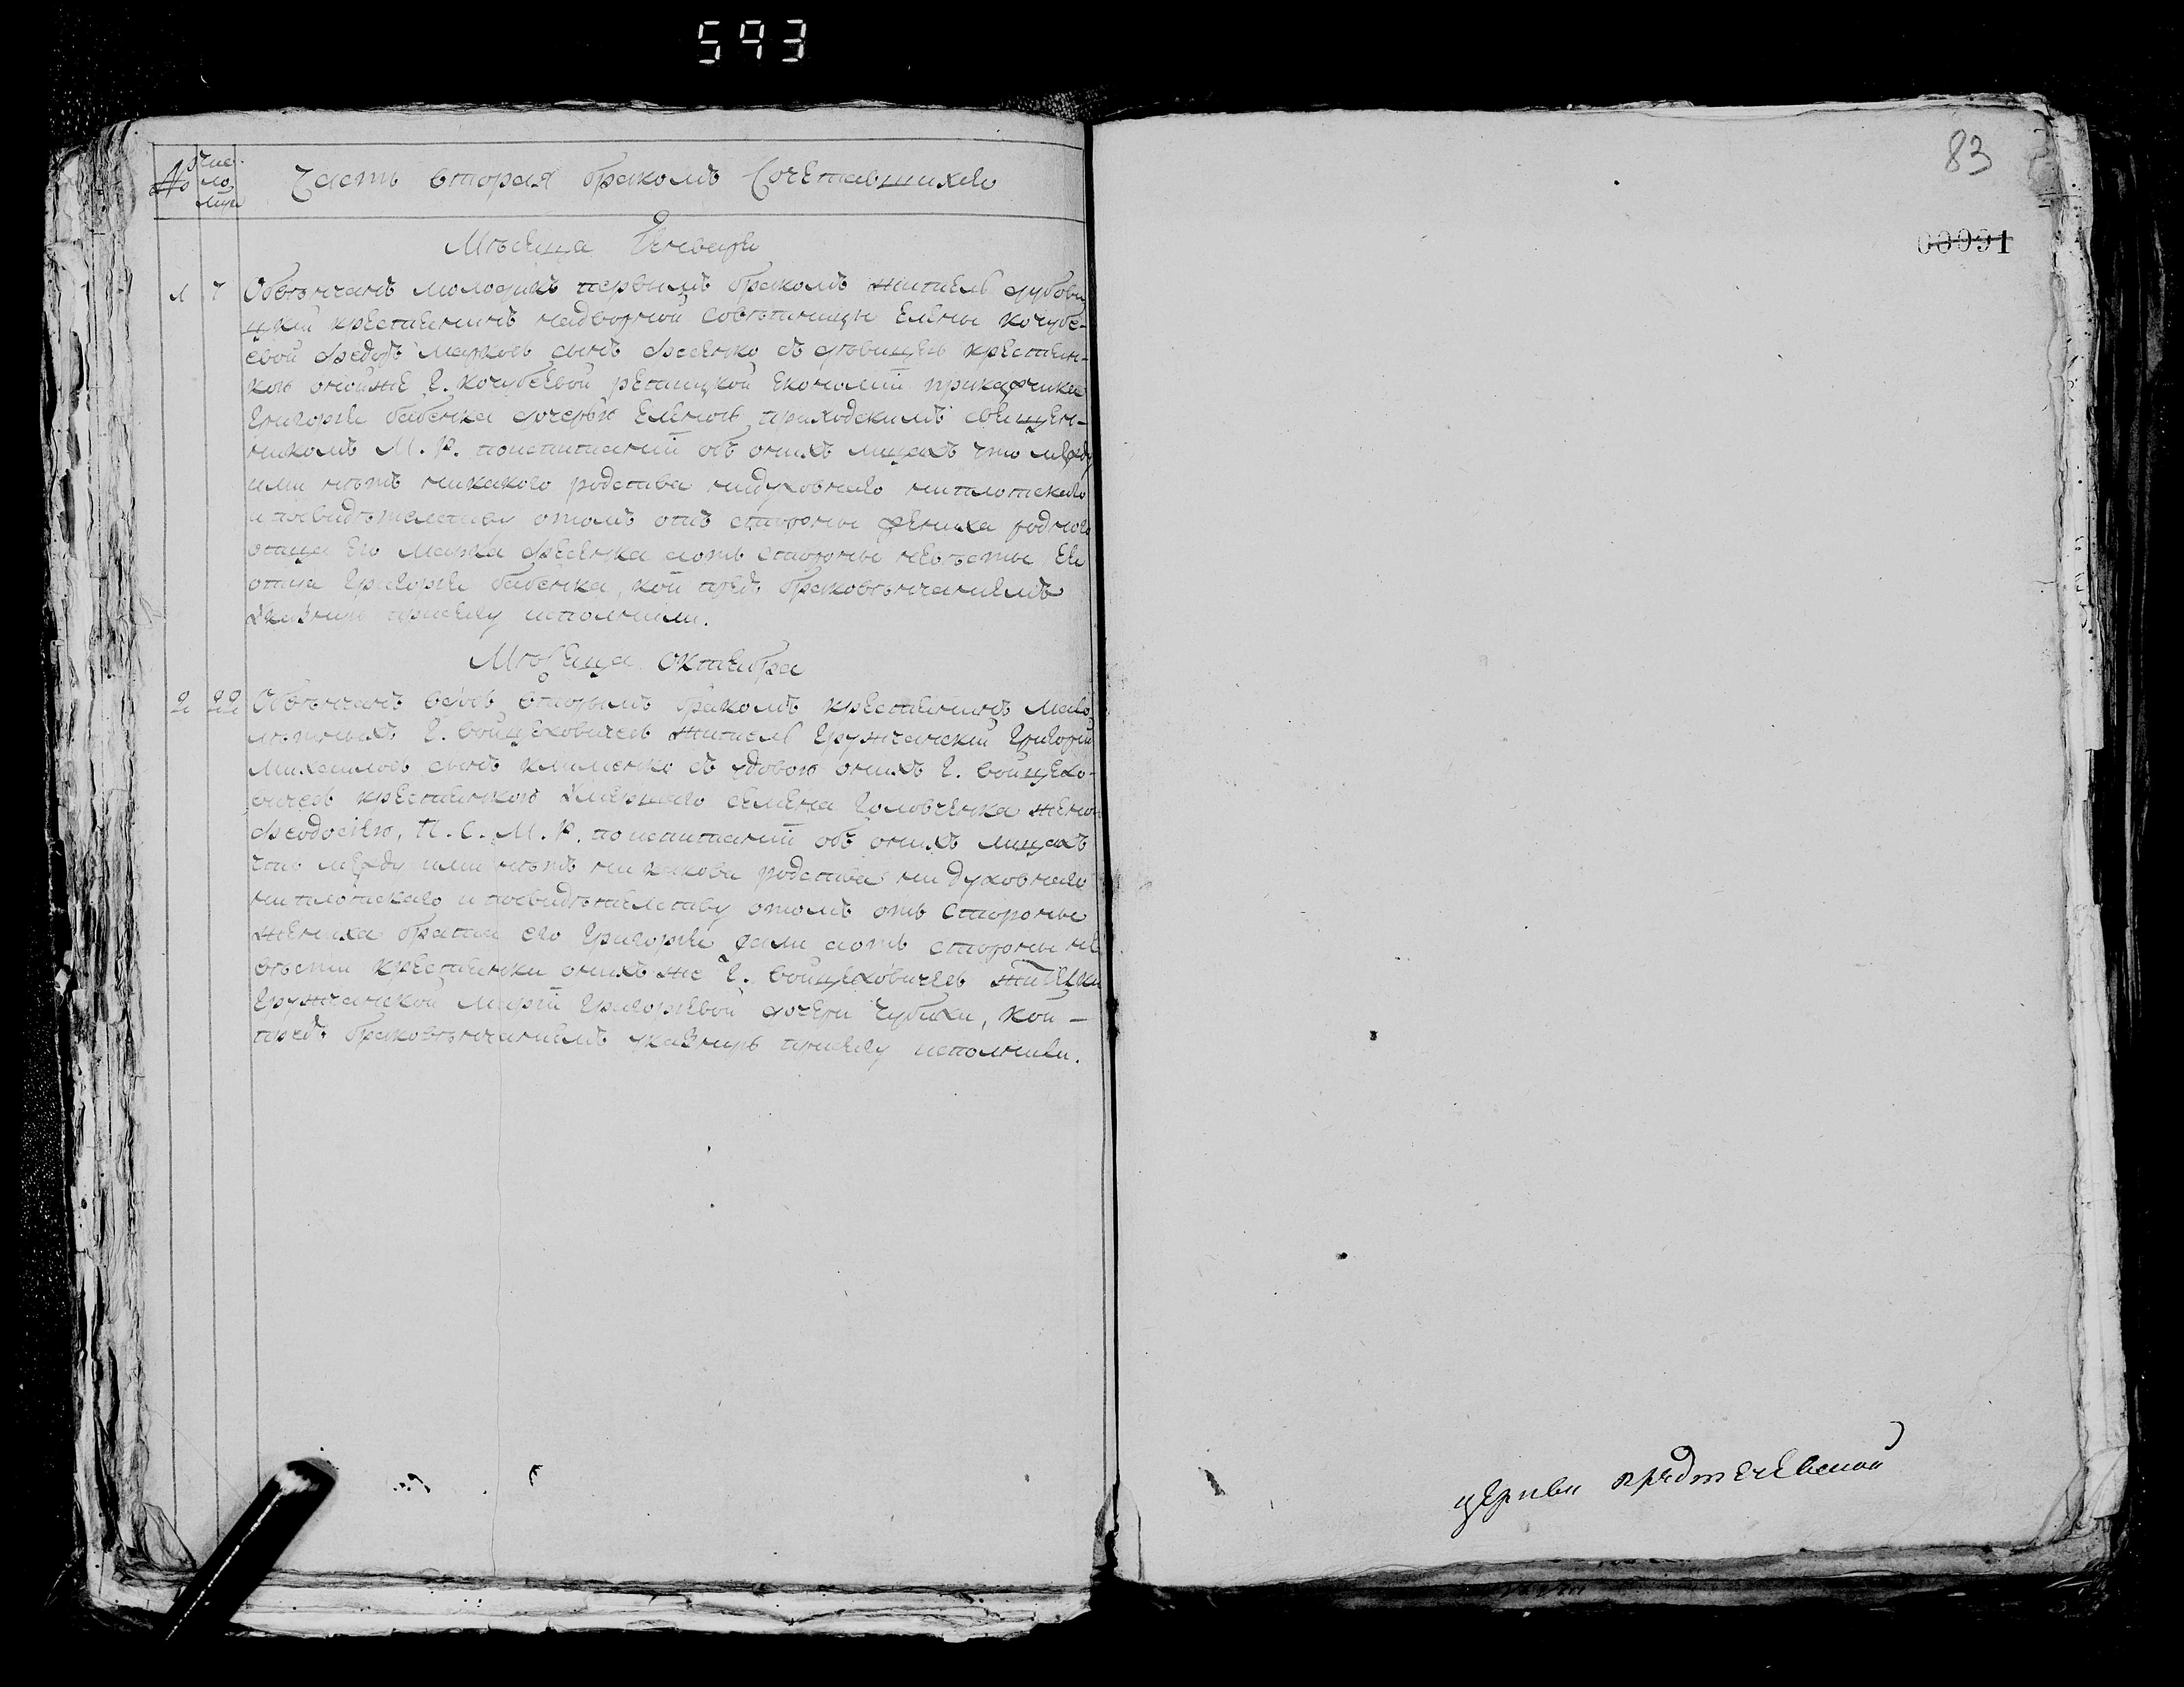 593
№ Чис-
ло
Часть вторая бракомъ Сочетавшихся
Мѣсяца Генваря
1 7 Обвѣнчанъ молодикъ первымъ бракомъ житель дубови
цкій крестянинъ надворной совѣтницы Елены кочубе-
евой Федоръ марковъ сынъ Фесенко съ дѣвицею крестян-
кою онойже Г. кочубеевой репицкой Економіи прикасчика
Григорія бабенка дочерью Еленою приходскимъ священ-
никомъ М. Р. поиспитаніи объ онихъ лицахъ что между
ими нѣтъ никакого родства нидуховнаго ниплотскаго
и посвидѣтелству отомъ отъ стороны жениха родного
отца Его Марка Фесенка аотъ стороны невѣсты Ея
отца Григорія бабенка, кои предъ браковѣнчаніемъ
указную присягу исполнили.
Мѣсяца октября
2 22 Обвѣнчанъ вдовъ вторымъ бракомъ крестянинъ мало
лѣтныхъ Г. войцеховичевъ житель Гружчанскій Григорій
Михайловъ сынъ клименко съ удовою онихъ Г. войцехо-
вичевъ крестянкою умершаго семена Головченка женою
Феодосіею, П. С. М. Р. поиспитаніи объ онихъ лицахъ
что между ими нѣтъ никакова родства ни духовнаго
ниплотскаго и посвидѣтелству отомъ отъ стороны
жениха братъ его Григорій аотъ стороны не
вѣсти крестянки онихъ же Г. войцеховичевъ жителки
Гружчанской маріи Григорьевой дочери Чубихи, кои –
предъ браковѣнчаніемъ указную присягу исполнили.
83
00091
церкви предтечевской